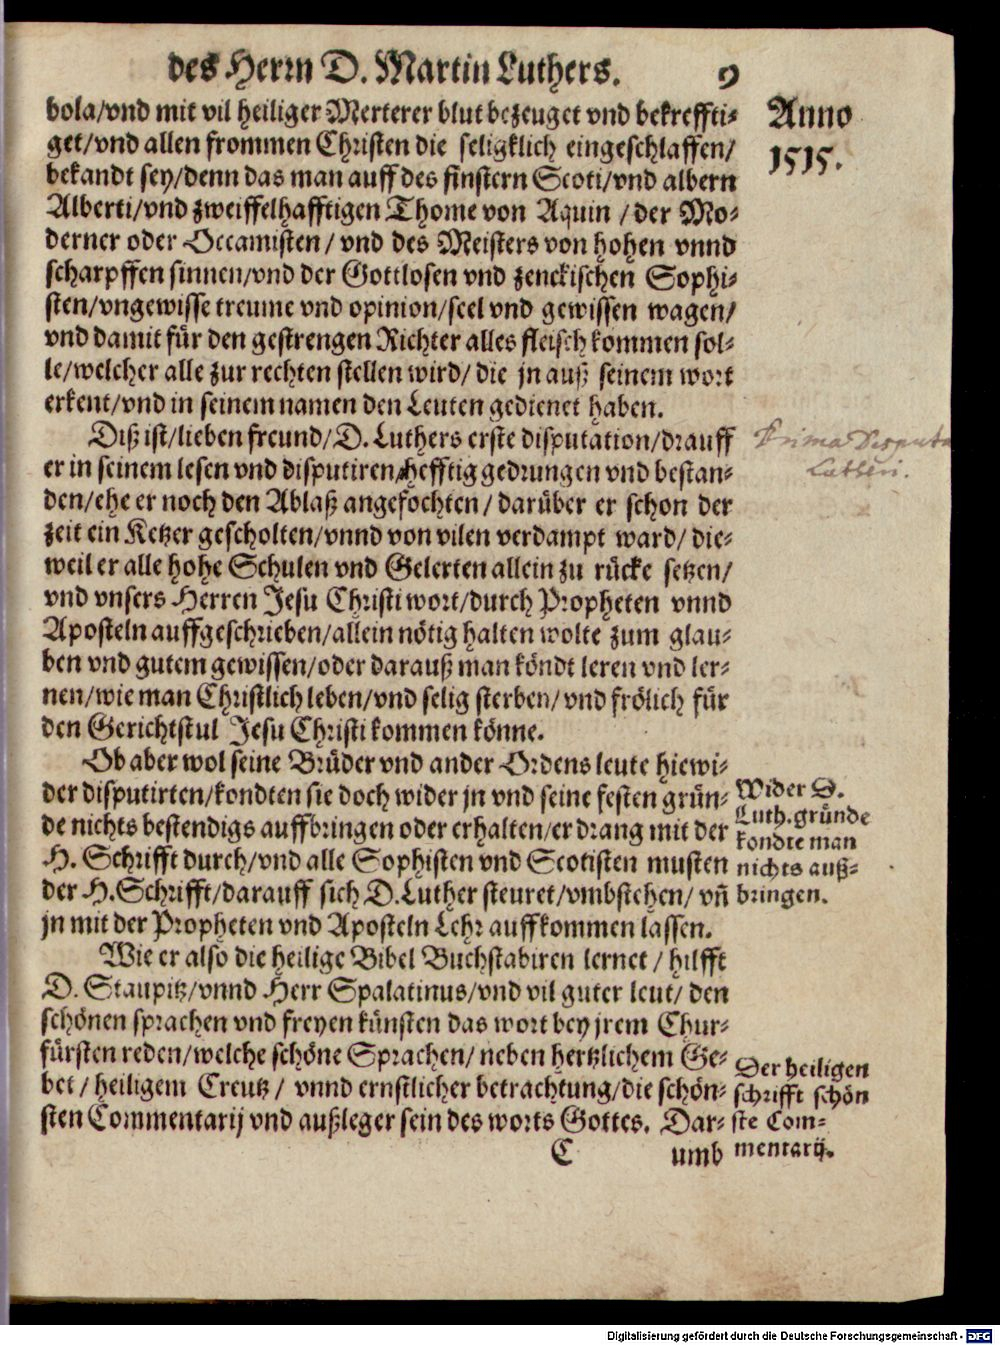 des Herrn D. Martin Luthers. 9
bola/vnd mit vil heiliger Merterer blut bezeuget vnd bekreffti-
get/vnd allen frommen Christen die seligklich eingeschlaffen/
bekandt sey/denn das man auff des finstern Scoti/vnd albern
Alberti/vnd zweiffelhafftigen Thome von Aquin /der Mo-
derner oder Occamisten/ vnd des Meisters von hohen vnnd
scharpffen sinnen/vnd der Gottlosen vnd zenckischen Sophi-
sten/vngewisse treume vnd opinion/seel vnd gewissen wagen/
vnd damit für den gestrengen Richter alles fleisch kommen sol-
le/welcher alle zur rechten stellen wird/ die jn auß seinem wort
erkent/vnd in seinem namen den Leuten gedienet haben.
Diß ist/lieben freund/D. Luthers erste disputation/drauff
er in seinem lesen vnd disputiren/hefftig gedrungen vnd bestan-
den/ehe er noch den Ablaß angefochten/ darüber er schon der
zeit ein Ketzer gescholten/vnnd von vilen verdampt ward/ die-
weil er alle hohe Schulen vnd Gelerten allein zu rücke setzen/
vnd vnsers Herren Jesu Christi wort/durch Propheten vnnd
Aposteln auffgeschrieben/allein nötig halten wolte zum glau-
ben vnd gutem gewissen/oder darauß man köndt leren vnd ler-
nen/wie man Christlich leben/vnd selig sterben/vnd frölich für
den Gerichtstul Jesu Christi kommen könne.
Ob aber wol seine Brüder vnd ander Ordens leute hiewi-
der disputirten/kondten sie doch wider jn vnd seine festen grün-
de nichts bestendigs auffbringen oder erhalten/er drang mit der
H. Schrifft durch/vnd alle Sophisten vnd Scotisten musten
der H.Schrifft/darauff sich D.Luther steuret/vmbstehen/ vñ
jn mit der Propheten vnd Aposteln Lehr auffkommen lassen.
Wie er also die heilige Bibel Buchstabiren lernet / hilfft
D. Staupitz/vnnd Herr Spalatinus/vnd vil guter leut/ den
schönen sprachen vnd freyen künsten das wort bey jrem Chur-
fürsten reden/welche schöne Sprachen/ neben hertzlichem Ge-
bet / heiligem Creutz / vnnd ernstlicher betrachtung/die schön-
sten Commentarij vnd außleger sein des worts Gottes. Dar-
C umb
Anno
1515.
Prima Disputa
Lutheri.
Wider D.
Luth.gründe
kondte man
nichts auß-
bringen.
Der heiligen
schrifft schön
ste Com-
mentarij.
Digitalisierung gefördert durch die Deutsche Forschungsgemeinschaft - DFG